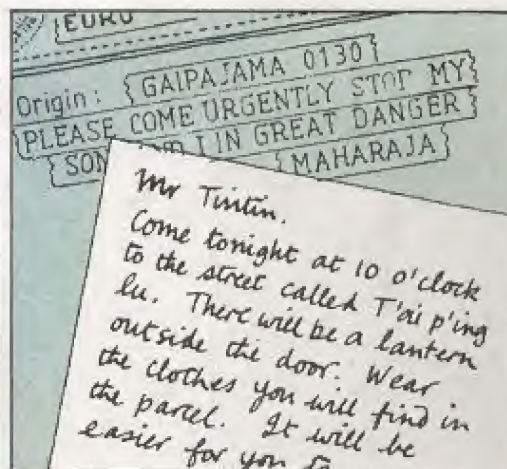 EURO
Origin: GAIPAJAMA 0130
PLEASE COME URGENTLY STOP MY
SON I IN GREAT DANGER
MAHARAJA
Mr Tintin.
Come tonight at 10 o'clock
to the street called T'ai p'ing
lu. There will be a lantern
outside the door. Wear
the clothes you will find in
the parcel. It will be
easier for you to